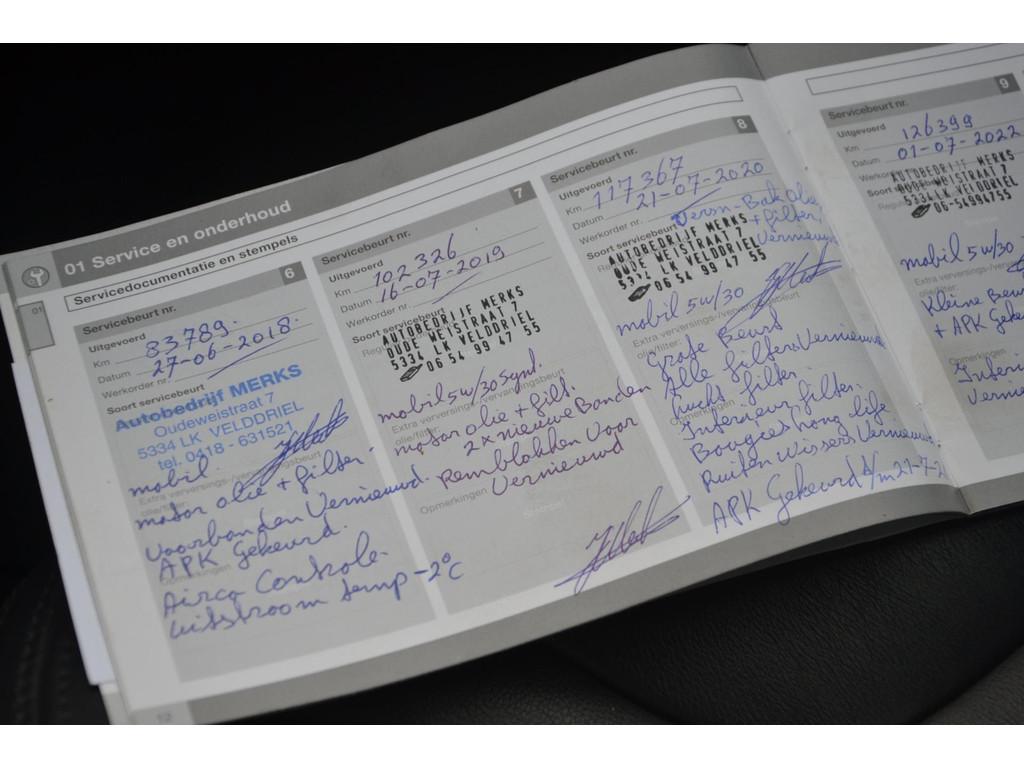 01 Service en onderhoud
Servicedocumentatie en stempels
01
Servicebeurt nr. 6
Uitgevoerd
Km 83789.
Datum 27-06-2018.
Werkorder nr.
Soort servicebeurt
Autobedrijf MERKS
Oudeweistraat 7
5334 LK VELDDRIEL
tel. 0418 - 631521
mobil
Extra verversings-/vervangbeurt
olie/filter:
motor olie + filter.
Voorbanden Vernieuwd.
APK Gekeurd.
Opmerkingen
Airco Controle.
uitstroom temp -2°C
12
Servicebeurt nr. 7
Uitgevoerd
Km 102326
Datum 16-07-2019
Werkorder nr.
Soort servicebeurt
AUTOBEDRIJF MERKS
OUDE WEISTRAAT 7
5334 LK VELDDRIEL
06 54 99 47 55
mobil 5w/30 Synt.
Extra verversings-/vervangbeurt
olie/filter:
motor olie + filt.
2x nieuwe Banden
Remblokken Voor
Opmerkingen
Vernieuwd
Servicebeurt nr. 8
Uitgevoerd
Km 117367
Datum 21-07-2020
Werkorder nr.
Versn-Bak Olie
+ filter
Vernieuwd
Soort servicebeurt
AUTOBEDRIJF MERKS
OUDE WEISTRAAT 7
5334 LK VELDDRIEL
06 54 99 47 55
mobil 5w/30
Extra verversings-/vervangbeurt
olie/filter:
Grote Beurt
Alle filters Vernieuwd
Lucht filter.
Opmerkingen
Interieur filter.
Bougies long life
Ruiten Wissers Vernieuwd
APK Gekeurd t/m 21-7-2
Servicebeurt nr. 9
Uitgevoerd
Km 126399
Datum 01-07-2022
Soort
AUTOBEDRIJF MERKS
OUDE WEISTRAAT 7
5334 LK VELDDRIEL
06-54994755
mobil 5w/30
Extra verversings-/
olie/filter:
Kleine Beur
+ APK Geke
Opmerkingen
Interi
Verni